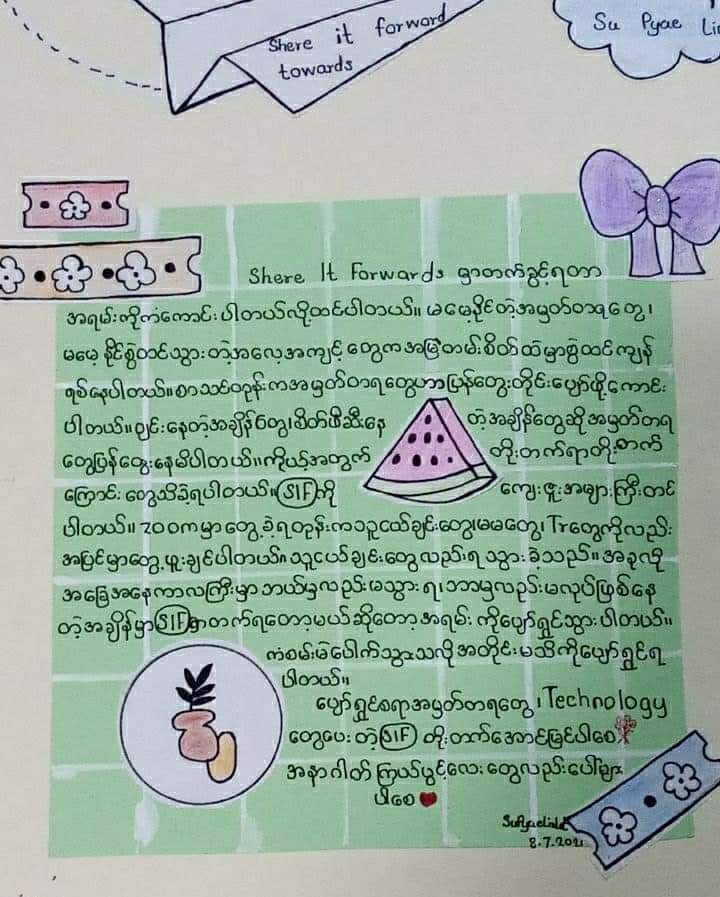 Shere it forward
towards
Su Pyae Lin
Shere It Forwards မှာတက်ခွင့်ရတာ
အရမ်းကိုကံကောင်းပါတယ်လို့ထင်ပါတယ်။ မမေ့နိုင်တဲ့အမှတ်တရတွေ၊
မမေ့နိုင်စွဲတင်သွားတဲ့အလေ့အကျင့်တွေကအမြဲတမ်းစိတ်ထဲမှာစွဲထင်ကျန်
ရစ်နေပါတယ်။စာသင်ဝဝုန်းကအမှတ်တရတွေဟာပြန်တွေးတိုင်းပျော်ဖို့ကောင်း
ပါတယ်။ ပျင်းနေတဲ့အချိန်တွေ၊စိတ်ဖိစီးနေ တဲ့အချိန်တွေဆိုအမှတ်တရ
တွေပြန်တွေးနေမိပါတယ်။ကိုယ့်အတွက် တိုးတက်ရာတိုးတက်
ကြောင်းတွေသိခဲ့ရပါတယ်။ SIF ကို ကျေးဇူးအများကြီးတင်
ပါတယ်။ zoomမှာတွေ့ခဲ့ရတုန်းကသူငယ်ချင်းတွေ၊မမတွေ၊Trတွေကိုလည်း
အပြင်မှာတွေ့ဖူးချင်ပါတယ်။သူငယ်ချင်းတွေလည်းရသွားခဲ့သည်။အခုလို
အခြေအနေကာလကြီးမှာဘယ်မှလည်းမသွားရ၊ဘာမှလည်းမလုပ်ဖြစ်နေ
တဲ့အချိန်မှာ SIF မှာတက်ရတော့မယ်ဆိုတော့အရမ်းကိုပျော်ရွှင်သွားပါတယ်။
ကံစမ်းမဲပေါက်သွားသလိုအတိုင်းမသိကိုပျော်ရွှင်ရ
ပါတယ်။
ပျော်ရွှင်စရာအမှတ်တရတွေ၊Technology
တွေပေးတဲ့ SIF တိုးတက်အောင်မြင်ပါစေ
အနာဂါတ်ကြယ်ပွင့်လေးတွေလည်းပေါ်များ
ပါစေ
SuPyaeLinLt
8.7.2021